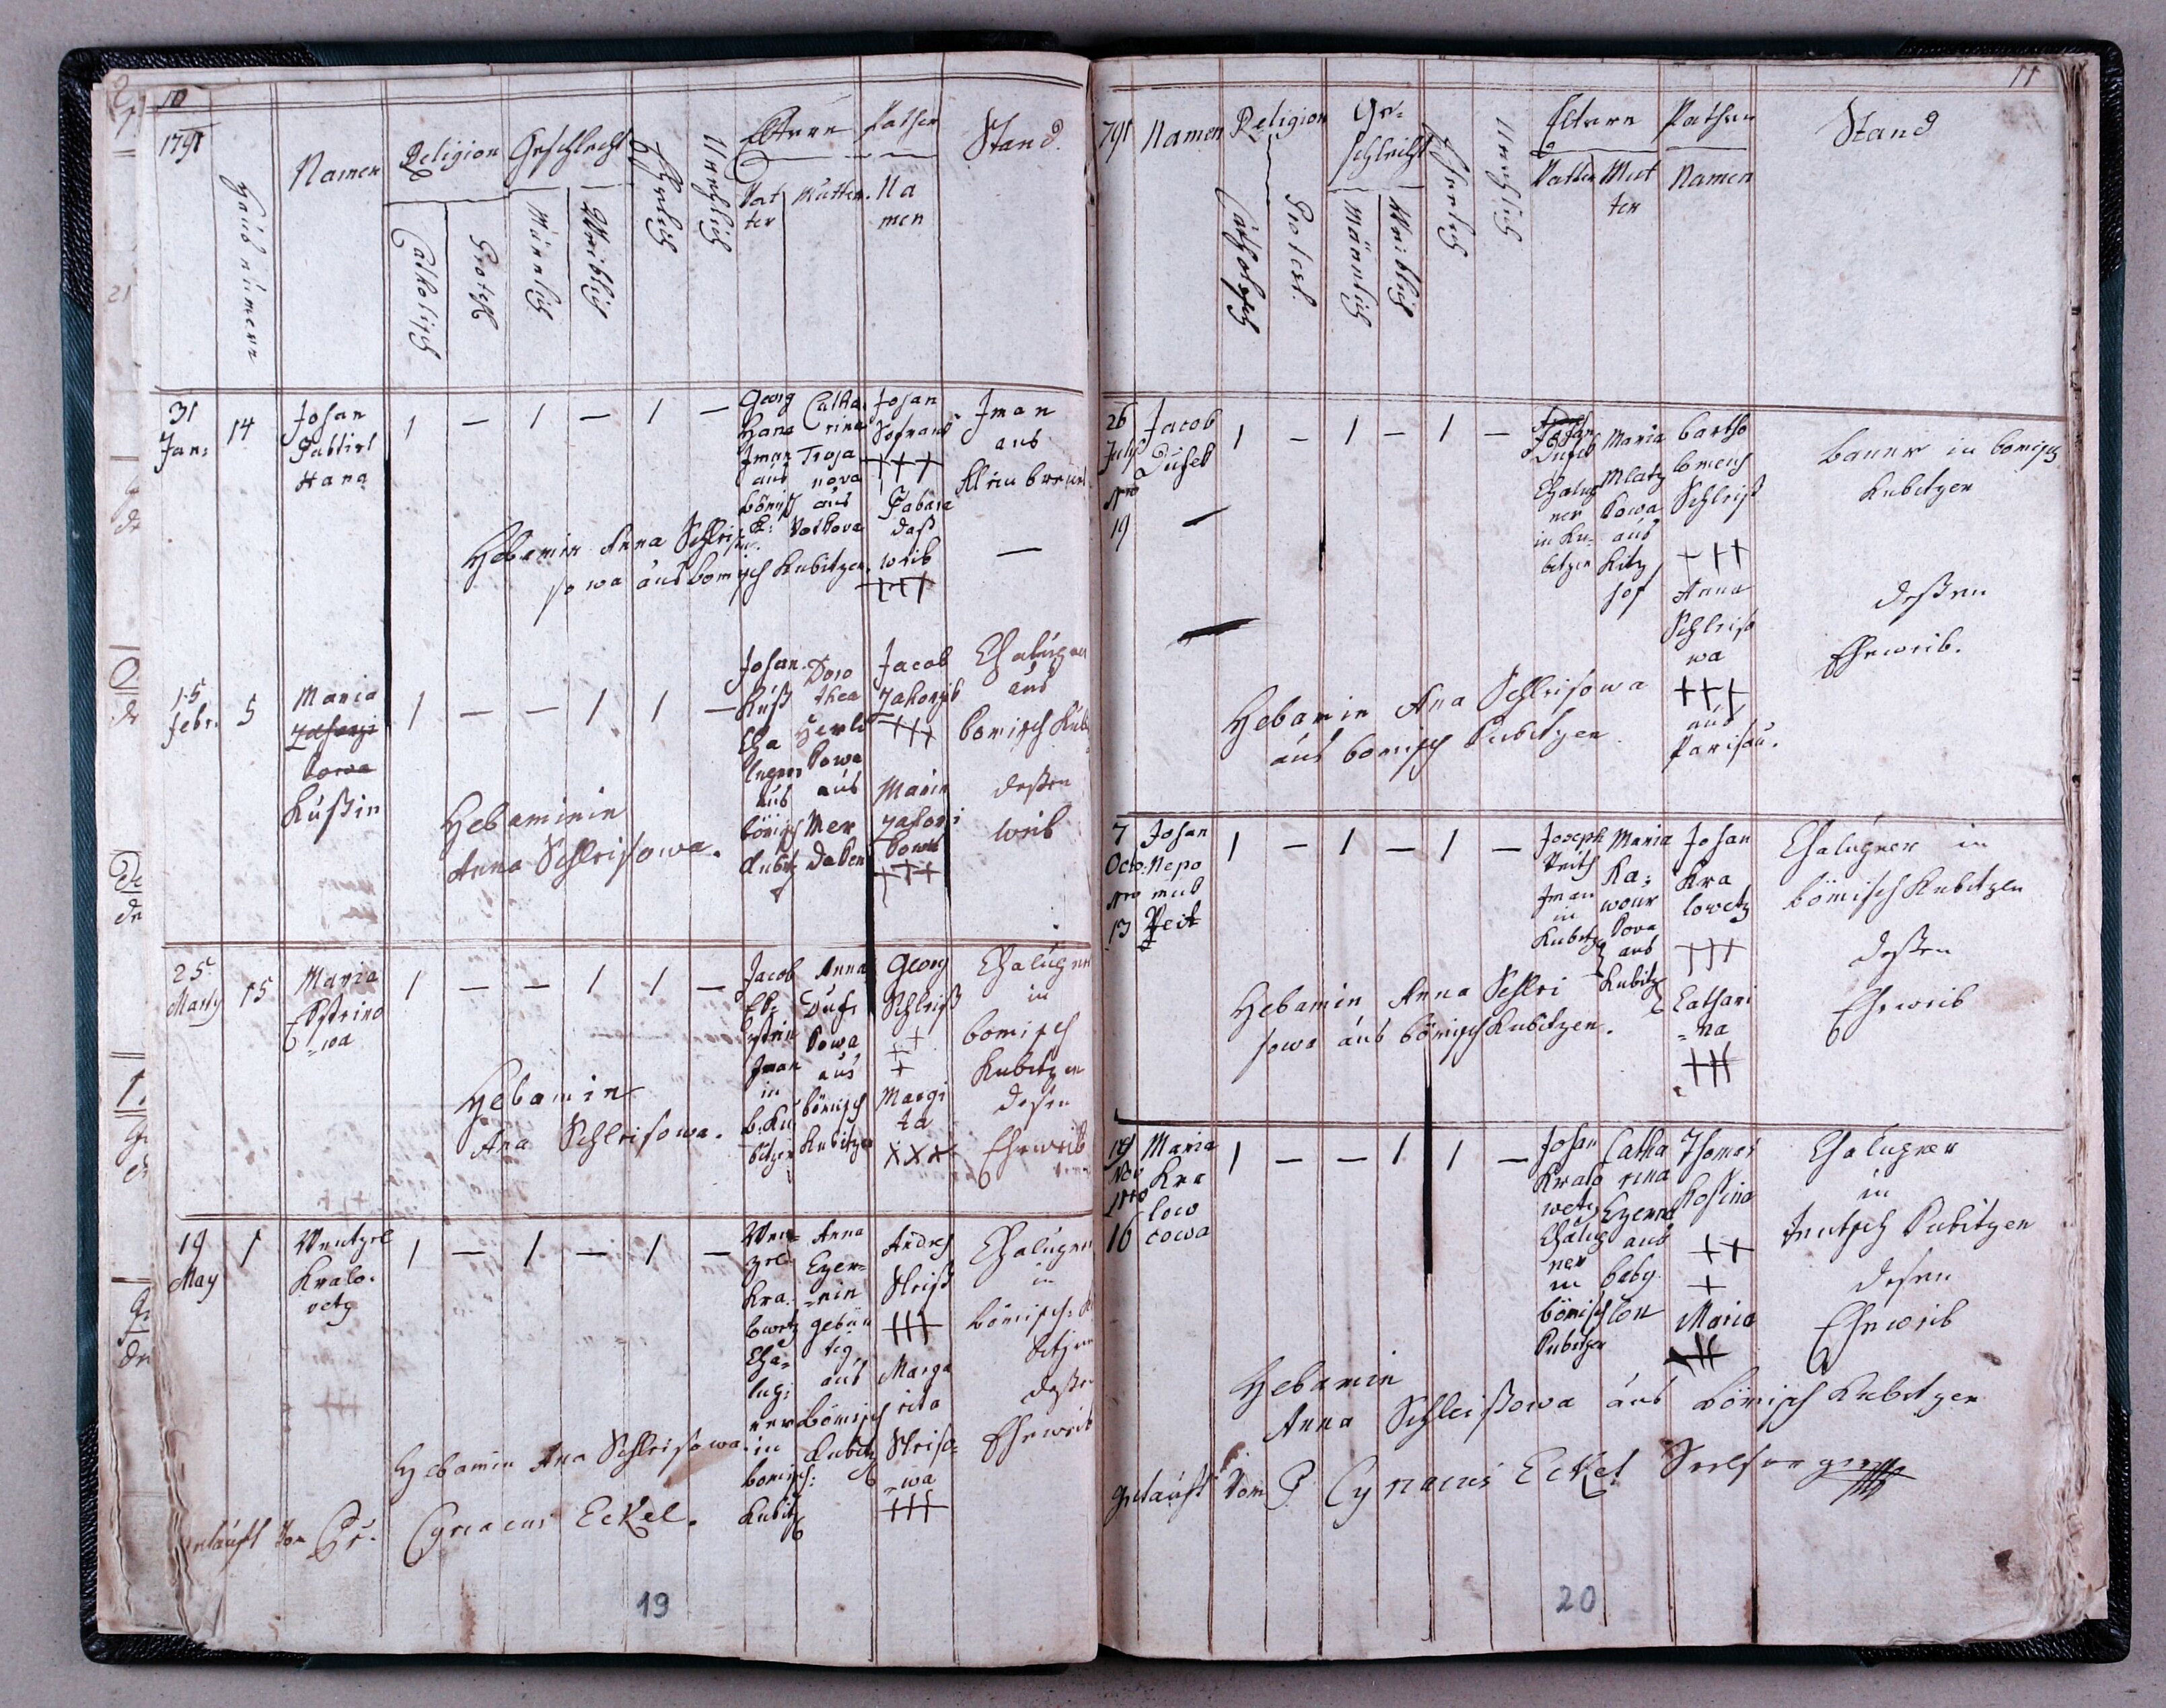 10
1791
Haus numern
Namen
Religion
Catholisch
Protest
Geschlecht
Männlich
Weiblich
Ehrlich
Unehrlich
Eltern
Vat
ter
Mutter.
Pathen
Na
men
Stand.
31
Jan:
14
Johan
Babtist
Hana
1 — 1 — 1 —
Georg
Hana
Iman
aus
bömisch
Catha
rina
Troja
nova
aus
Johan
+++
daß
weib
+++
Iman
aus
Hebamin Anna Schlei
sowa aus bomisch Kubitzen.
—
15
febr.
5
Maria
Kußin
1 — — 1 1 —
Johan
Kuß
Cha
lupner
aus
bömisch
Kubitz
Doro
thea
kowa
aus
Jacob
+++
Maria
+++
Chalupner
aus
bomisch
deßen
weib
Hebaminin
Anna Schleisowa.
25
Marty
15
Maria
1 — — 1 1 —
Jacob
Iman
in
b. Ku
bitzen
Anna
Duse
kowa
aus
bömisch
Kubitzen
Georg
Schleiß
++
+
Margi
ta
XXX
Chalupner
in
bomisch
Kubitzen
desen
Eheweib
Hebamin
Ana Schleisowa.
19
May
1
Wentzel
Kralo.
vetz
1 — 1 — 1 —
Wen
zel
Kra.
lowetz
Cha=
lup:
ner
in
bomisch:
Kubitz
Anna
Ezer=
=nin
gebür
tig
aus
bömisch
Kubitz
Andres
Sleiß
+++
Marga
rita
Sleiso=
=wa
+++
Chalupner
in
bömisch=
bitzen
deßen
Eheweib
Hebamin Ana Schleisowa
getauft von Pr. Cyriacus Eckel.
19
11
791
Namen
Religion
Catholisch
Protest.
Ge=
schlecht
Männlich
Weiblich
Ehrlich
Unehrlich
Eltern
Vatter
Mut
ter
Pathen
Namen
Stand
26
July
Nro
19
Jacob
Dusek
1 — 1 — 1 —
Johan
Dusek
Chalup
ner
in Ku=
bitzen
Maria
Mlatz
kowa
aus
Kitz
hof
bartho
lomeus
Schleiß
+++
Anna
Schleiso
wa
+++
aus
Parisau.
bauer in bomisch
Kubitzen
deßen
Eheweib.
Hebamin Ana Schleisowa
aus bomisch Kubitzen
7
Octo.
Nro
13
Johan
Nepo
muc
Veit
1 — 1 — 1 —
Joseph
Veith
Iman
in
Kubitz
Maria
Ka=
wour
kova
aus
Kubitz
Johan
Kra
lowetz
+++
Cathari
=na
+++
Chalupner in
bömisch Kubitzen
deßen
Eheweib
Hebamin Anna Schlei
sowa aus bömisch Kubitzen.
19
Nov
Nro
16
Maria
Kra
low
cowa
1 — — 1 1 —
Johan
Kralo
wetz
Chalup
ner
in
bömisch
Kubitzen
Catha
rina
Ezerna
aus
baby
lon
Thomas
Kossina
++
+
Maria
+++
Chalupner
in
Teutsch Kubitzen
desen
Eheweib
Hebamin
Anna Schleissowa aus bömisch Kubitzen
getauft vom P. Cyriacus Eckel Seelsorger
20